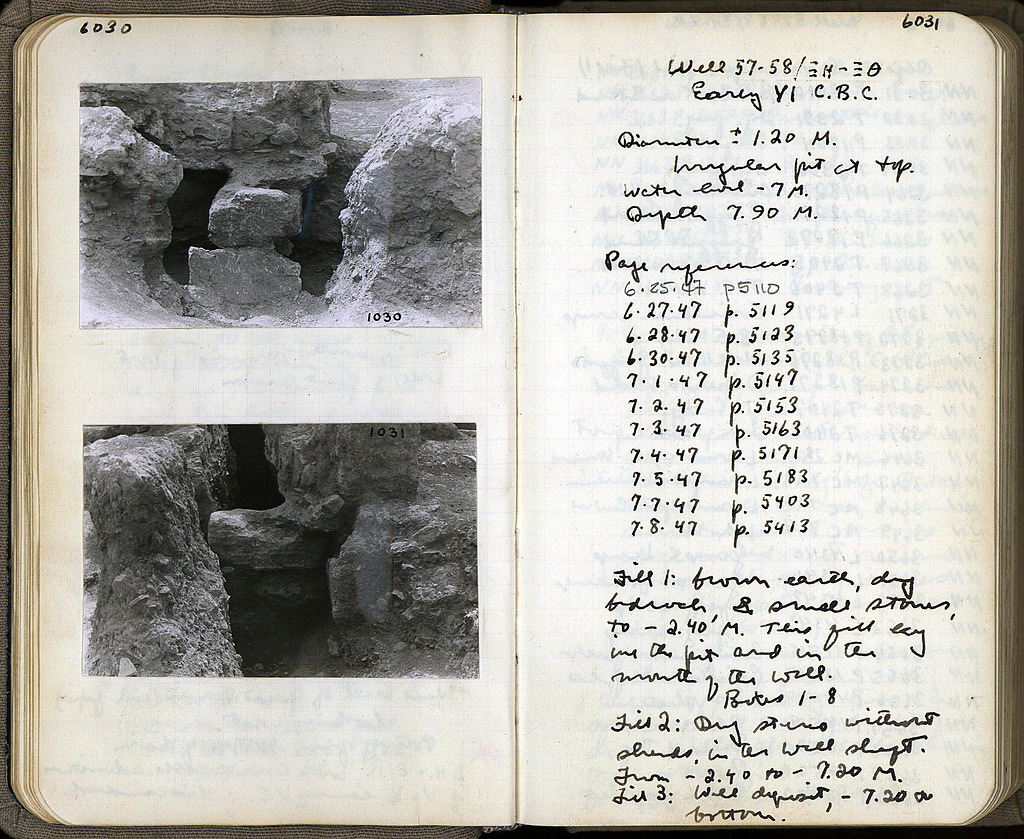 6030
1030
1031
6031
Well 57-58/ΞΗ-ΞΘ
Early VI C.B.C.
Diameter ± 1.20 M.
Irregular pit at top.
Water level - 7 M.
Depth 7.90 M.
Page references:
6.25.47 p5110
6.27.47 p. 5119
6.28.47 p. 5123
6.30.47 p. 5135
7.1.47 p. 5147
7.2.47 p. 5153
7.3.47 p. 5163
7.4.47 p. 5171
7.5.47 p. 5183
7.7.47 p. 5403
7.8.47 p. 5413
Fill 1: brown earth, dug
bedrock, & small stones,
to - 2.40 M. This fill lay
in the pit and in the
mouth of the well.
Boxes 1-8
Fill 2: Dug stereo without
sherds, in the well shaft.
From - 2.40 to - 7.20 M.
Fill 3: Well deposit, - 7.20 to
bottom.